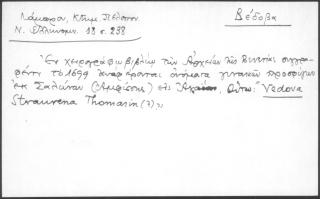 Λάμπρου, Κτημ. Πελοπον. Βέδοβα
Ν. Ἑλληνομν. 18 σ. 238
Ἐν χειρογράφῳ βιβλίῳ τῶν Ἀρχείων τῆς Βενετίας συγγρα-
φέντι τὸ 1699 ἀναφέρονται ὀνόματα γυναικῶν προσφύγων
ἐκ Σαλώνων (Ἀμφίσσης) εἰς Οὕτω: "Vedova
Thomasin (?)»